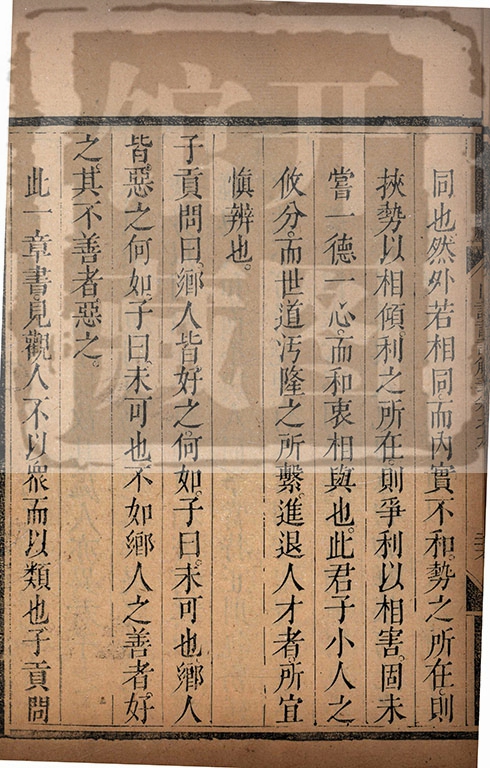 同也然外若相同而內實不和勢之所在則
挾勢以相傾利之所在則爭利以相害固未
嘗一德一心而和衷相與也此君子小人之
攸分而世道汚隆之所繫進退人才者所宜
愼辨也
子貢問曰鄉人皆好之何如子曰未可也鄉人
皆惡之何如子曰未可也不如鄉人之善者好
之其不善者惡之
此一章書見觀人不以衆而以類也子貢問